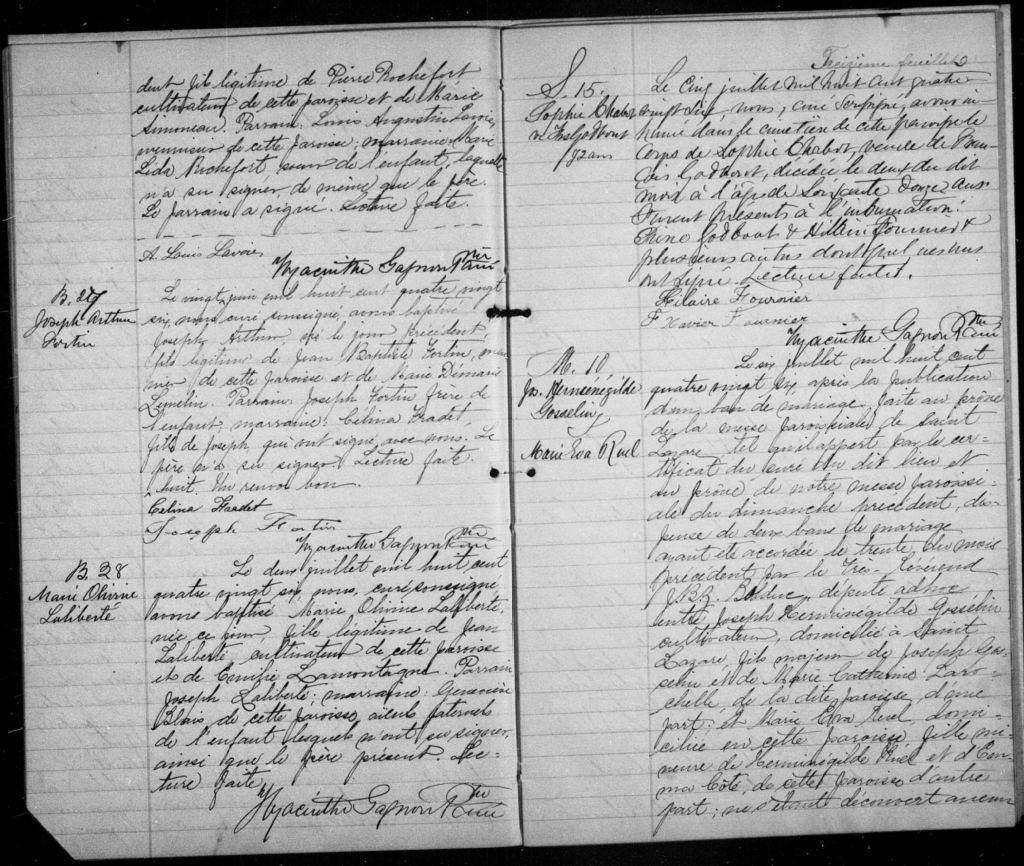 dent fils légitime de Pierre Rochefort
cultivateur de cette paroisse et de Marie
Simoneau. Parrain: Louis Augustin Lavoie,
menuisier de cette paroisse; marraine: Marie
Lida Rochefort soeur de l'enfant, laquelle
n'a su signer de même que le père.
Le parrain a signé. Lecture faite.
A. Louis Lavoie
Hyacinthe Gagnon Ptre
Curé
B. 27
Joseph Arthur
Fortin
Le vingt juin mil huit cent quatre vingt
six, nous curé soussigné, avons baptisé
Joseph Arthur, né le jour précédent,
fils légitime de Jean Baptiste Fortin,
de cette paroisse et de Marie Démaris
Lemelin. Parrain: Joseph Fortin frère de
l'enfant, marraine: Célina Fradet,
fille de Joseph, qui ont signé avec nous. Le
père n'a su signer. Lecture faite.
huit. Un renvoi bon.
Célina Fradet
Joseph Fortin
Hyacinthe Gagnon Ptre
Curé
B. 28
Marie Olivine
Laliberté
Le deux juillet mil huit cent
quatre vingt six, nous, curé soussigné
avons baptisé Marie Olivine Laliberté,
née ce jour, fille légitime de Jean
Laliberté cultivateur de cette paroisse
et de Lamontagne. Parrain
Joseph Laliberté; marraine: Geneviève
Blais, de cette paroisse, aïeuls paternels
de l'enfant lesquels n'ont su signer,
ainsi que le père présent. Lec-
ture faite.
Hyacinthe Gagnon Ptre
Curé
Treizième feuillet
S. 15.
Sophie Chabot
ve Frs Godbout
72 ans
Le cinq juillet mil huit cent quatre
vingt six, nous, curé soussigné, avons in-
humé dans le cimetière de cette paroisse le
corps de Sophie Chabot, veuve de Fran-
çois Godbout, décédée le deux du dit
mois à l'âge de soixante douze ans.
Furent présents à l'inhumation:
Godbout & Hilaire Fournier &
plusieurs autres dont quelques uns
ont signé. Lecture faite.
Hilaire Fournier
F. Xavier Fournier
Hyacinthe Gagnon Ptre
Curé
M. 10
Js. Herménégilde
Gosselin
&
Marie Eva Ruel
Le six juillet mil huit cent
quatre vingt six après la publication
d'un ban de mariage, faite au prône
de la messe paroissiale de Saint
Lazare, tel qu'il appert par le cer-
tificat du curé du dit lieu et
au prône de notre messe paroissi-
ale du dimanche précédent, dis-
pense de deux bans de mariage
ayant été accordée le trente du mois
précédent par le Très Révérend
J.BZ. Bolduc, député adhoc
entre Joseph Herménégilde Gosselin
cultivateur, domicilié à Saint
Lazare, fils majeur de Joseph Gos-
selin et de Marie Catherine Laro-
chelle, de la dite paroisse, d'une
part; et Marie Eva Ruel, domi-
ciliée en cette paroisse, fille mi-
neure de Herménégilde Ruel et d'Em-
ma Côté, de cette paroisse d'autre
part; ne s'étant découvert aucun